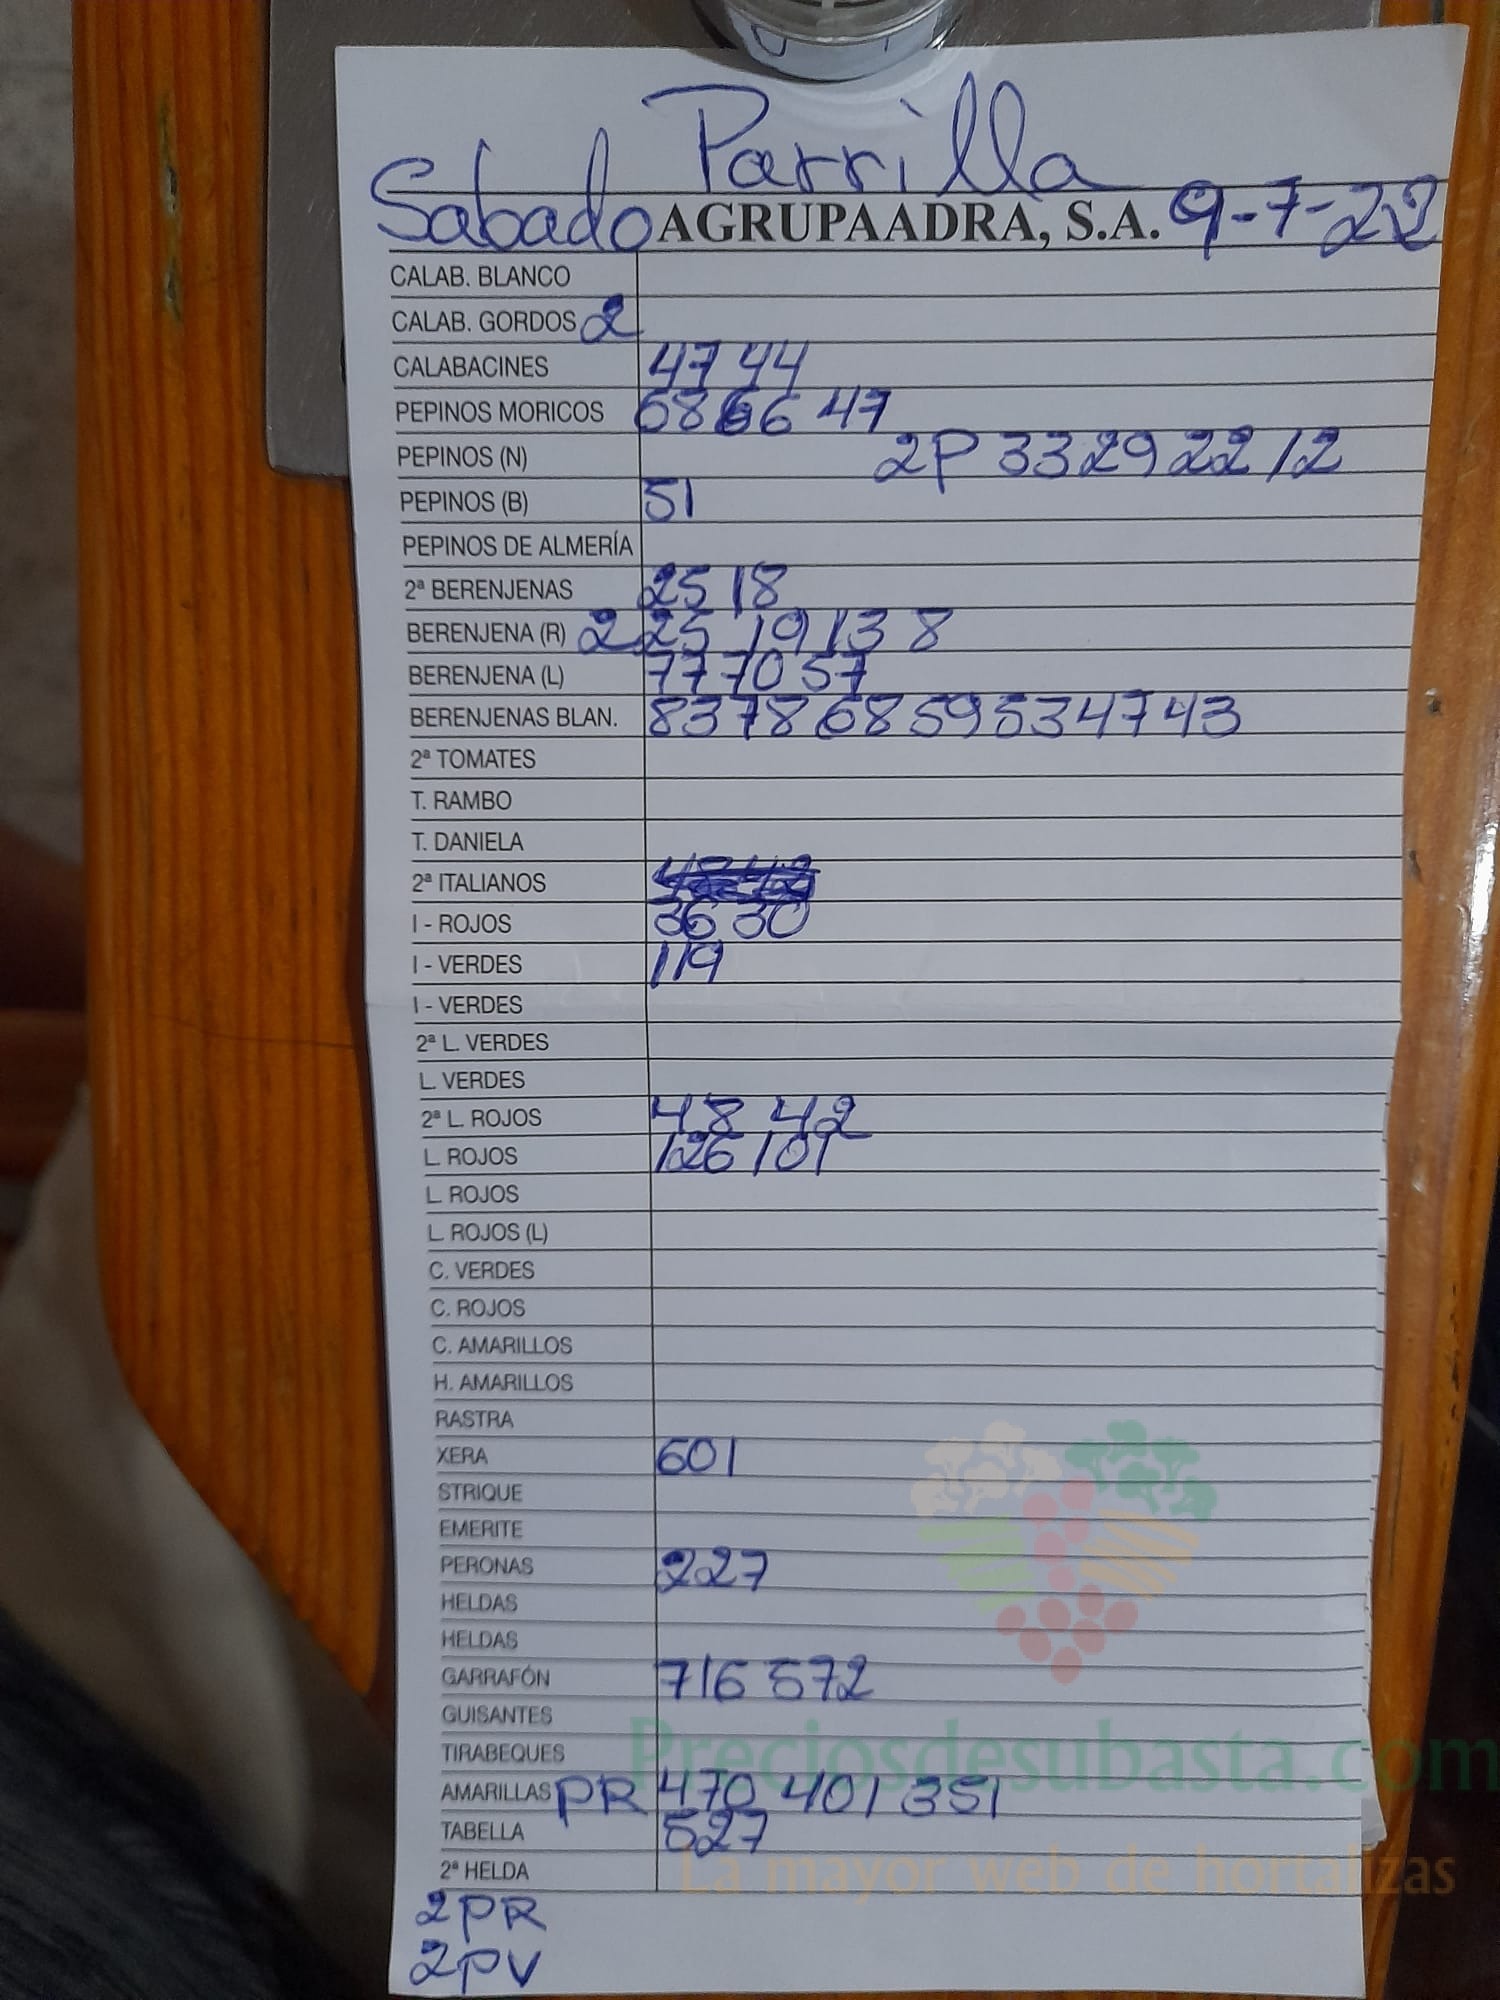 Parrilla
Sabado AGRUPAADRA, S.A. 9-7-22
CALAB. BLANCO
CALAB. GORDOS 2
CALABACINES 47 44
PEPINOS MORICOS 68 66 47
PEPINOS (N) 2P 33 29 22 12
PEPINOS (B) 51
PEPINOS DE ALMERÍA
2ª BERENJENAS 25 18
BERENJENA (R) 2 25 19 13 8
BERENJENA (L) 77 70 57
BERENJENAS BLAN. 83 78 68 59 53 47 43
2ª TOMATES
T. RAMBO
T. DANIELA
2ª ITALIANOS
I - ROJOS 36 30
I - VERDES 119
I - VERDES
2ª L. VERDES
L. VERDES
2ª L. ROJOS 48 42
L. ROJOS 126 101
L. ROJOS
L. ROJOS (L)
C. VERDES
C. ROJOS
C. AMARILLOS
H. AMARILLOS
RASTRA
XERA 601
STRIQUE
EMERITE
PERONAS 227
HELDAS
HELDAS
GARRAFÓN 716 572
GUISANTES
TIRABEQUES
Preciosdesubasta.com
AMARILLAS PR 470 401 351
TABELLA 527
2ª HELDA
La mayor web de hortalizas
2PR
2PV